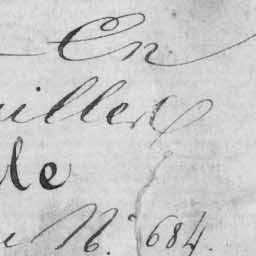 En
illet
de
N.° 684.